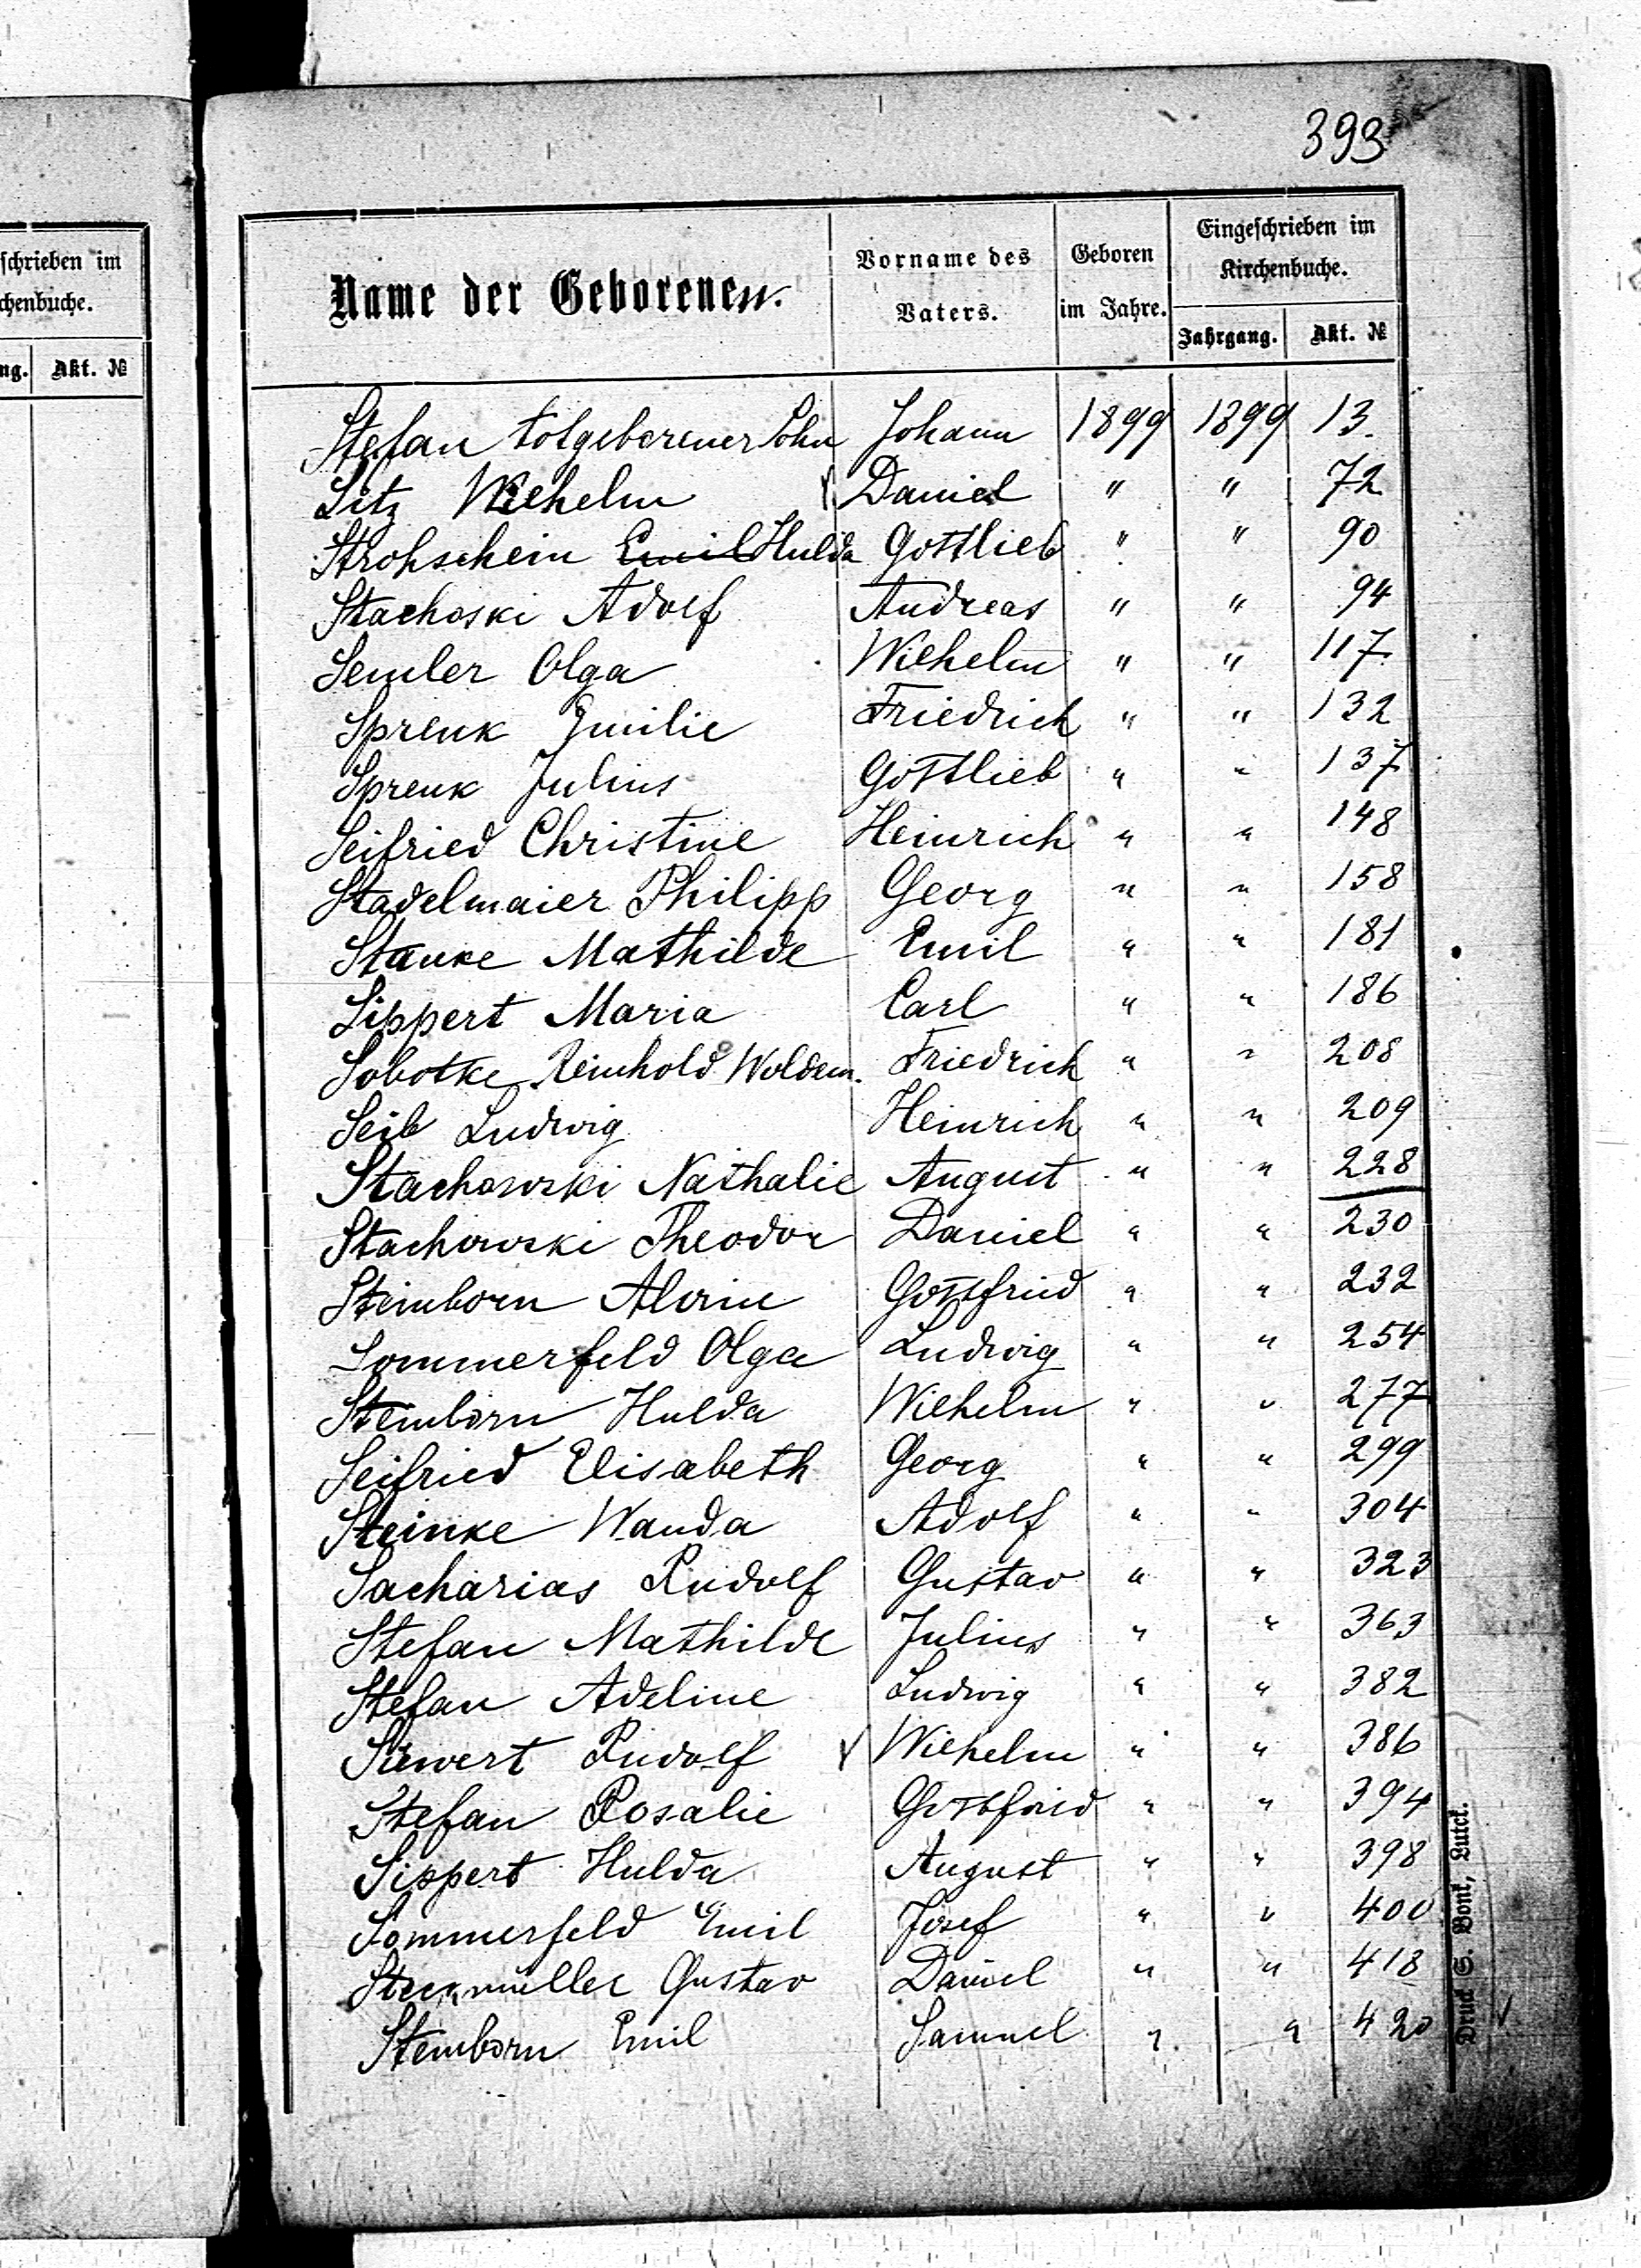 393
schrieben im
chenbuche.
ng. Akt. №
Name der Geborenen.
Vorname des Vaters.
Geboren im Jahre.
Eingeschrieben im Kirchenbuche.
Jahrgang. Akt. №
Stefan totgeborener Sohn Johann 1899 1899 13.
Sitz Wilhelm Daniel " " 72
Strohschein Emil Hulda Gottlieb " " 90
Stachoski Adolf Andreas " " 94
Semler Olga Wilhelm " " 117
Sprenk Emilie Friedrich " " 132
Sprenk Julius Gottlieb " " 137
Seifried Christine Heinrich " " 148
Stadelmaier Philipp Georg " " 158
Stanke Mathilde Emil " " 181
Sippert Maria Carl " " 186
Sobotke Reinhold Woldem. Friedrich " " 208
Seib Ludwig Heinrich " " 209
Stachowski Nathalie August " " 228
Stachowski Theodor Daniel " " 230
Steinborn Alwine Gottfried " " 232
Sommerfeld Olga Ludwig " " 254
Steinborn Hulda Wilhelm " " 277
Seifried Elisabeth Georg " " 299
Steinke Wanda Adolf " " 304
Sacharias Rudolf Gustav " " 323
Stefan Mathilde Julius " " 363
Stefan Adeline Ludwig " " 382
Siewert Rudolf Wilhelm " " 386
Stefan Rosalie Gottfried " " 394
Sippert Hulda August " " 398
Sommerfeld Emil Josef " " 400
Gustav Daniel " " 418
Steinborn Emil Samuel " " 420
Druck S. Bonk, Lutck.